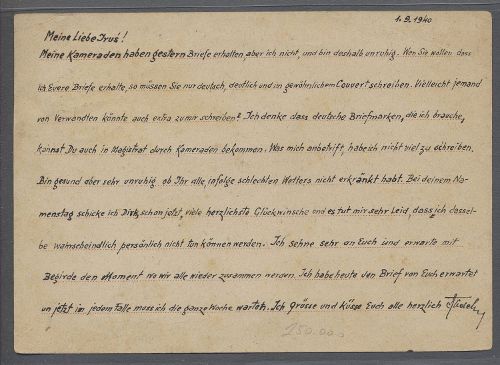 1.9.1940
Meine Liebe Trus!
Meine Kameraden haben gestern Briefe erhalten, aber ich nicht, und bin deshalb unruhig. Wen Sie wollen dass
ich Euere Briefe erhalte, so müssen Sie nur deutsch, deutlich und im gewöhnlichem Couvert schreiben. Vielleicht jemand
von Verwandten könnte auch extra zu mir schreiben? Ich denke dass deutsche Briefmarken, die ich brauche,
kannst Du auch in Magistrat durch Kameraden bekommen. Was mich anbetrift, habe ich nicht viel zu schreiben.
Bin gesund aber sehr unruhig ob Ihr alle, infolge schlechten Wetters nicht erkränkt habt. Bei deinem Na-
menstag schicke ich Dir, schon jetzt, viele herzlichste Glückwinsche und es tut mir sehr Leid, dass ich dassel-
be wahrscheindlich persönlich nicht ton können werden. Ich sehne sehr an Euch und erwarte mit
Begirde den Moment wo wir alle wieder zusammen werden. Ich habe heute den Brief von Euch erwartet
un jetzt im jedem Falle muss ich die ganze Woche warten. Ich grüsse und küsse Euch alle herzlich
250.00